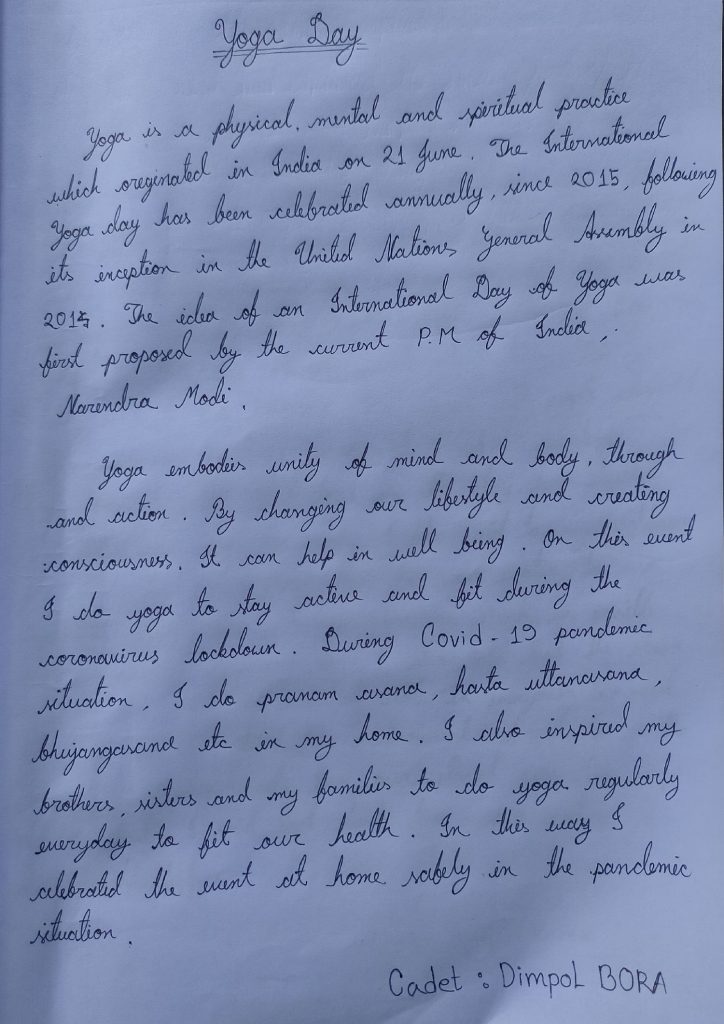 Yoga Day
Yoga is a physical, mental and spiritual practice
which oreginated in India on 21 June. The International
Yoga day has been celebrated annually, since 2015, following
its inception in the United Nations General Assembly in
2014. The idea of an International Day of Yoga was
first proposed by the current P.M of India,.
Narendra Modi.
Yoga embodies unity of mind and body, through
and action. By changing our lifestyle and creating
consciousness. It can help in well being. On this event
I do yoga to stay active and fit during the
coronavirus lockdown. During Covid-19 pandemic
situation, I do pranam asana, hasta uttanasana,
bhujangasana etc in my home. I also inspired my
brothers, sisters and my families to do yoga regularly
everyday to fit our health. In this way I
celebrated the event at home safely in the pandemic
situation.
Cadet : Dimpol BORA